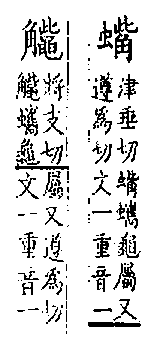 蟕
津垂切蟕蠵龜屬又
遵爲切文一重音一
將支切
蠵龜
屬又遵爲切
文一重音一